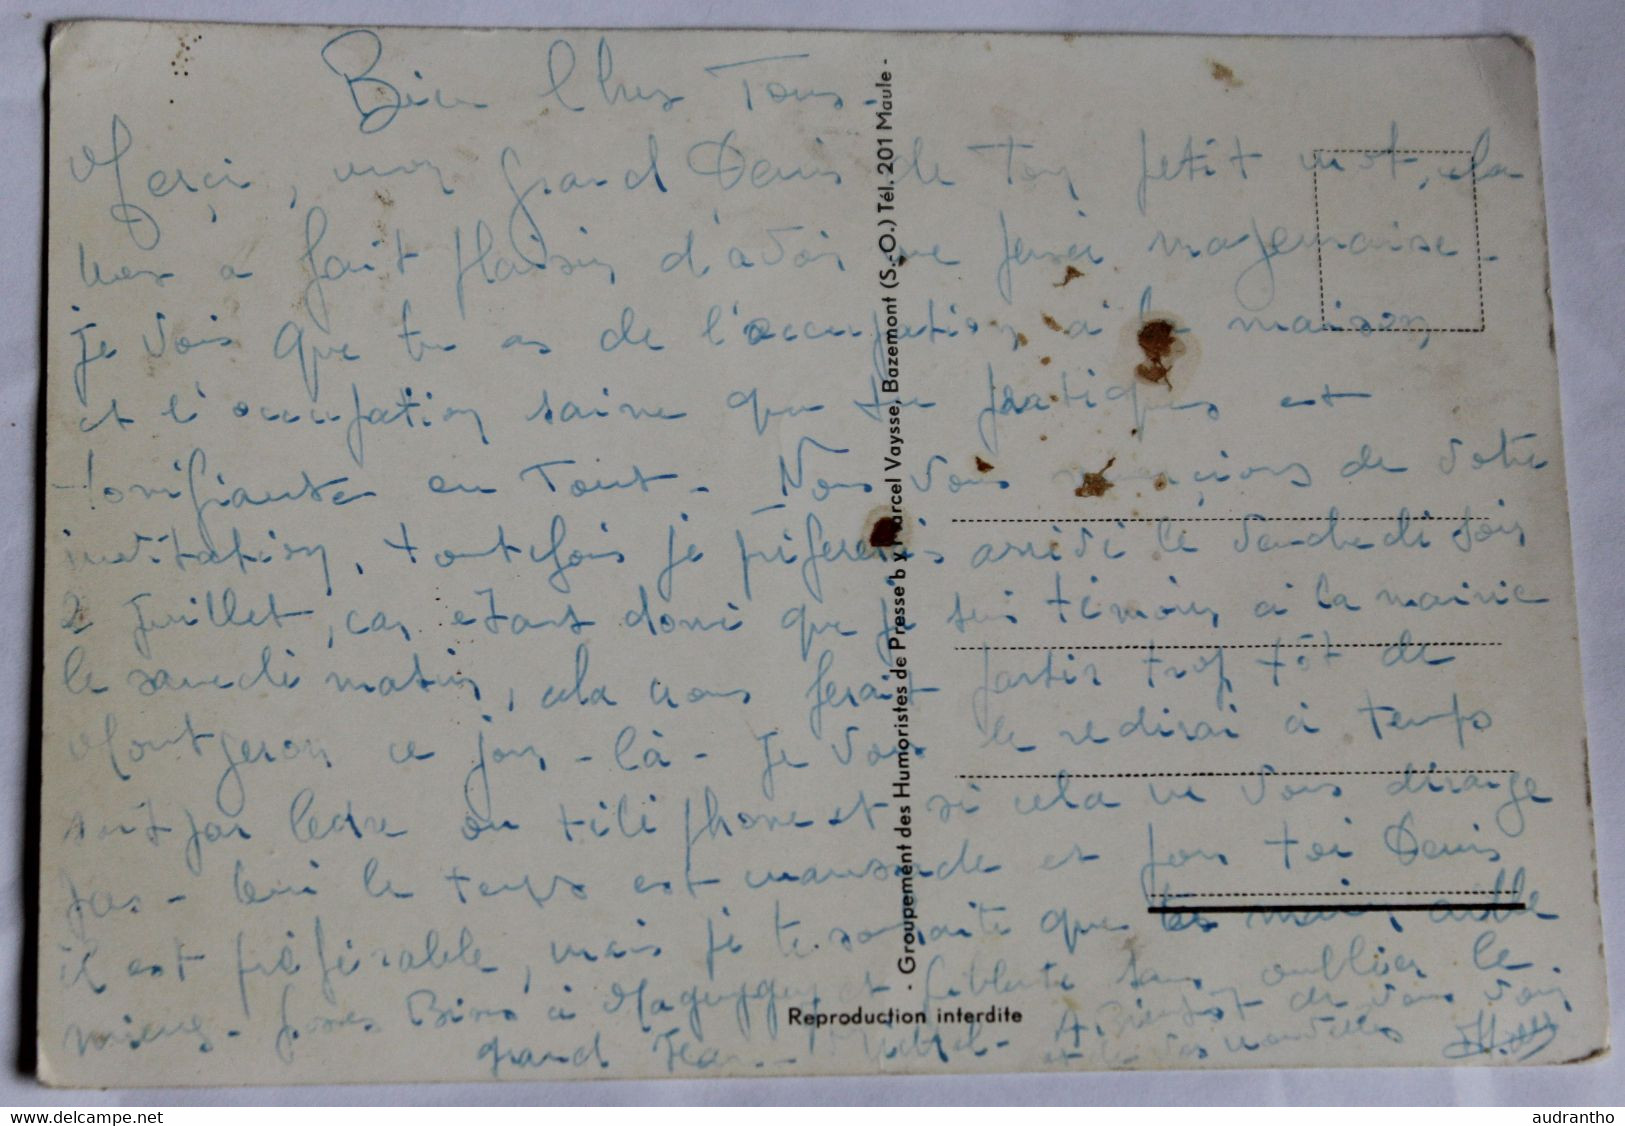 Bien Chers Tous.
Merçi, mon grand Denis de ton petit mot, cela
a fait plaisir d'avoir une
je vois que tu as de l'occupation à la maison,
et l'occupation saine que tu pratiques est
tonifiante en tout - Nous vous remerçions de votre
invitation, toutefois je préférerais arrivé le Vendredi soir
2 Juillet, car étant donné que je suis témoin à la mairie
le samedi matin, cela nous ferait partir trop tôt de
Montgeron ce jour-là - Je vous le redirai à temps
soit par lettre ou téléphone et si cela ne vous dérange
pas - le temps est maussade et pour toi Denis
il est préférable, mais je te souhaite que
mieux - Gros Bises à sans oublier le
grand Jean - A Bientôt de vous voir
et de vos nouvelles
- Groupement des Humoristes de Presse by Marcel Vaysse, Bazemont (S.-O.) Tél. 201 Maule -
Reproduction interdite
delcampe.net
audrantho